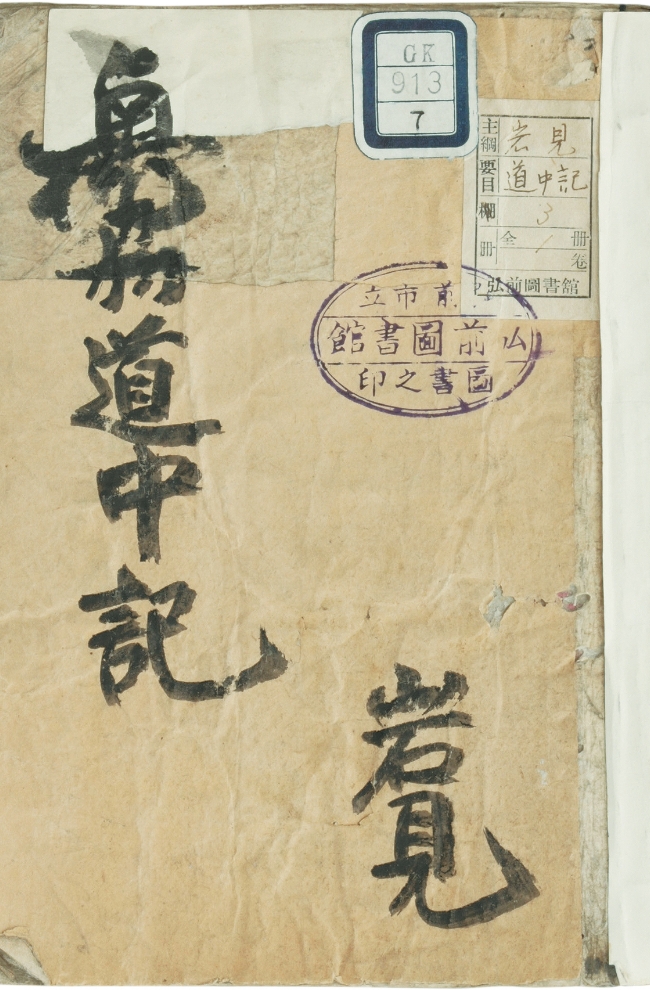 GK
913
7
主綱 岩見
要目 道中記
棚 3
冊 全1冊
卷
弘前圖書館
前市立
前圖書館
圖書之印
奥刕道中記
岩見